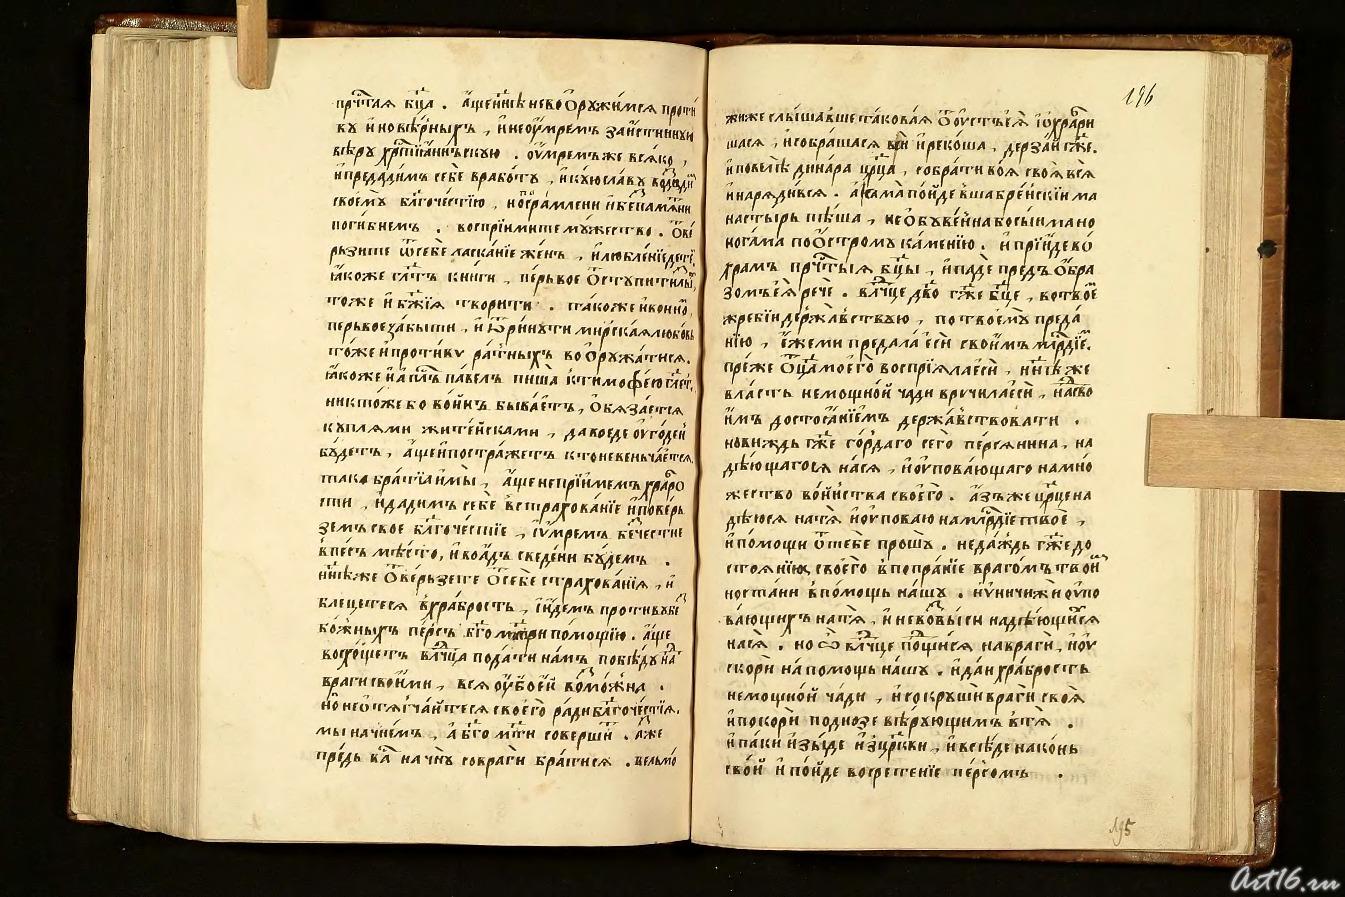 пречⷭ҇таꙗ бц҃а . а́ще нн҃ѣ не во ѡ҆ружи́мсѧ проти
ву иновѣ́рныхъ , и҆ не ѹ҆́мремъ за и҆́стинную
вѣ́ру христїа́ньскую . ѹ҆́мремъ же всѧ́ко ,
и҆ предади́мъ себѐ в рабо́тъ , и҆ кую сла́ву
своемꙋ̀ бл҃гоче́стїю , и҆ посра́млени и҆ без па́мѧти
поги́бнемъ . воспрїими́те му́жество . ѿве́
рьзите ѿ себѐ ласка́нїе же́нъ , и҆ любле́нїе дете́и̑
ꙗ҆́коже гл҃ютъ кни́ги , пе́рьвое ѿступи́ти злы̀
то́же и҆ бл҃га́ꙗ твори́ти . та́коже и҆ ко́нно
пе́рьвое забы́ти , и҆ ѿри́нути мирска́ꙗ любо́вь
то́же и҆ проти́ву ра́тныхъ во ѡ҆ружа́тисѧ .
ꙗ҆́коже и҆ а҆пⷭ҇лъ па́велъ пи́ша к тимоѳе́ю гл҃етъ ,
никто́же бо во́инъ быва́етъ , ѡ҆бѧза́етсѧ
ку́плѧми жите́йсками , да воеводе ѹ҆го́денъ
бу́детъ , а҆́ще и҆ постра́жетъ кто не венча́етсѧ .
та́ко бра́тїа и҆ мы̀ , а҆́ще не прїи́мемъ хра́бро
сти , и҆ дади́мъ себѐ в страхова́нїе и҆ пове́рь
земъ свое бл҃гоче́стїе , и ѹ҆́мремъ бе́счестне
в пе́съ мѣ́сто , и҆ во а҆́дъ сведе́ни бу́демъ .
нн҃ѣ же ѿве́рьзете ѿ себѐ страхова́нїꙗ , и҆
ѡблеце́тесѧ в хра́брость , и҆ и́демъ проти́ву без
бо́жныхъ пе́рсъ бг҃ом мт҃ри по́мощїю . а҆́ще
восхо́щетъ влⷣчца пода́ти на́мъ побѣ́ду на
враги свои́ми , всѧ ѹ҆́бо е҆́й возмо́жна .
но не ѡ҆тѧгча́йтесѧ своего̀ ради бл҃гоче́стїꙗ .
мы̀ на́чнемъ , а҆ бг҃о мт҃и соверши́тъ . а҆́зже
пре́дъ ва́ми начну̀ со врагѝ бра́тисѧ . вельмо́
196
жиже слы́шавше такова́ꙗ ѿ ѹ҆стъ еѧ̀ и҆ охра́бри
шасѧ , и҆ собра́шасѧ вси̑ и҆ реко́ша , дерза́й гж҃е .
и҆ повелѣ̀ дина́ра цр҃ца , собра́ти во́ѧ своѧ̀ всѧ̀
и҆ нарѧди́всѧ . а҆ сама̀ по́йде в шабре́нскїи ма
насты́рь пѣ́ша , не ѡ҆бувѐнна босы́има но
нога́ма по ѡ҆́строму ка́менїю . и҆ прїи́де во́
храмъ пречⷭ҇тыѧ бц҃ы , и҆ падѐ предъ ѻ҆́бра
зомъ еѧ̀ рече . влⷣчце дв҃о гж҃е бц҃е , во твое̑
жре́бїи держа́вствую , по твоему̀ преда
нїю , е҆́же ми предала̀ еси̑ свои́мъ млⷭ҇рдїе .
пре́же ѻ҆ц҃а моего̀ воспрїѧ́ла еси , нн҃ѣ же
вла́сть немощно́й ча́ди вручи́ла еси , на сво
и҆мъ достоѧ́нїемъ держа́вствовати .
но ви́ждь гж҃е го́рдаго сего̀ персѧ́нина , на
дѣ́ющагосѧ на сѧ̀ , и҆ ѹ҆пова́ющаго на мно́
жество во́инства своего̀ . а҆́зъ же цр҃це на
дѣ́юсѧ на тѧ̀ и҆ ѹ҆пова́ю на млⷭ҇рдїе твое̑ ,
и҆ по́мощи ѿ тебѐ прошу̀ . не да́ждь гж҃е до
стоѧ́нїѧ своего̀ в попра́нїе врагомъ твои́мъ
но ста́ни в по́мощь на́шу . и҆ уничижѝ ѹ҆по
ва́ющихъ на тѧ̀ , и҆ не во́звыси надѣ́ющисѧ
на сѧ̀ . но ѽ влⷣчце потщи́сѧ на врагѝ , и҆ ѹ҆
скори̑ на по́мощь на́шу . и҆ да́и хра́брость
немощно́й ча́ди , и҆ сокруши̑ враги̑ своѧ̀
и҆ покори̑ под но́зе вѣ́рующимъ в тѧ̀ .
и҆ па́ки и҆зы́де и҆з цр҃кви , и҆ всѣ́де на ко́нь
сво́й и҆ по́йде во сре́тенїе пе́рсомъ .
195
Art16.ru